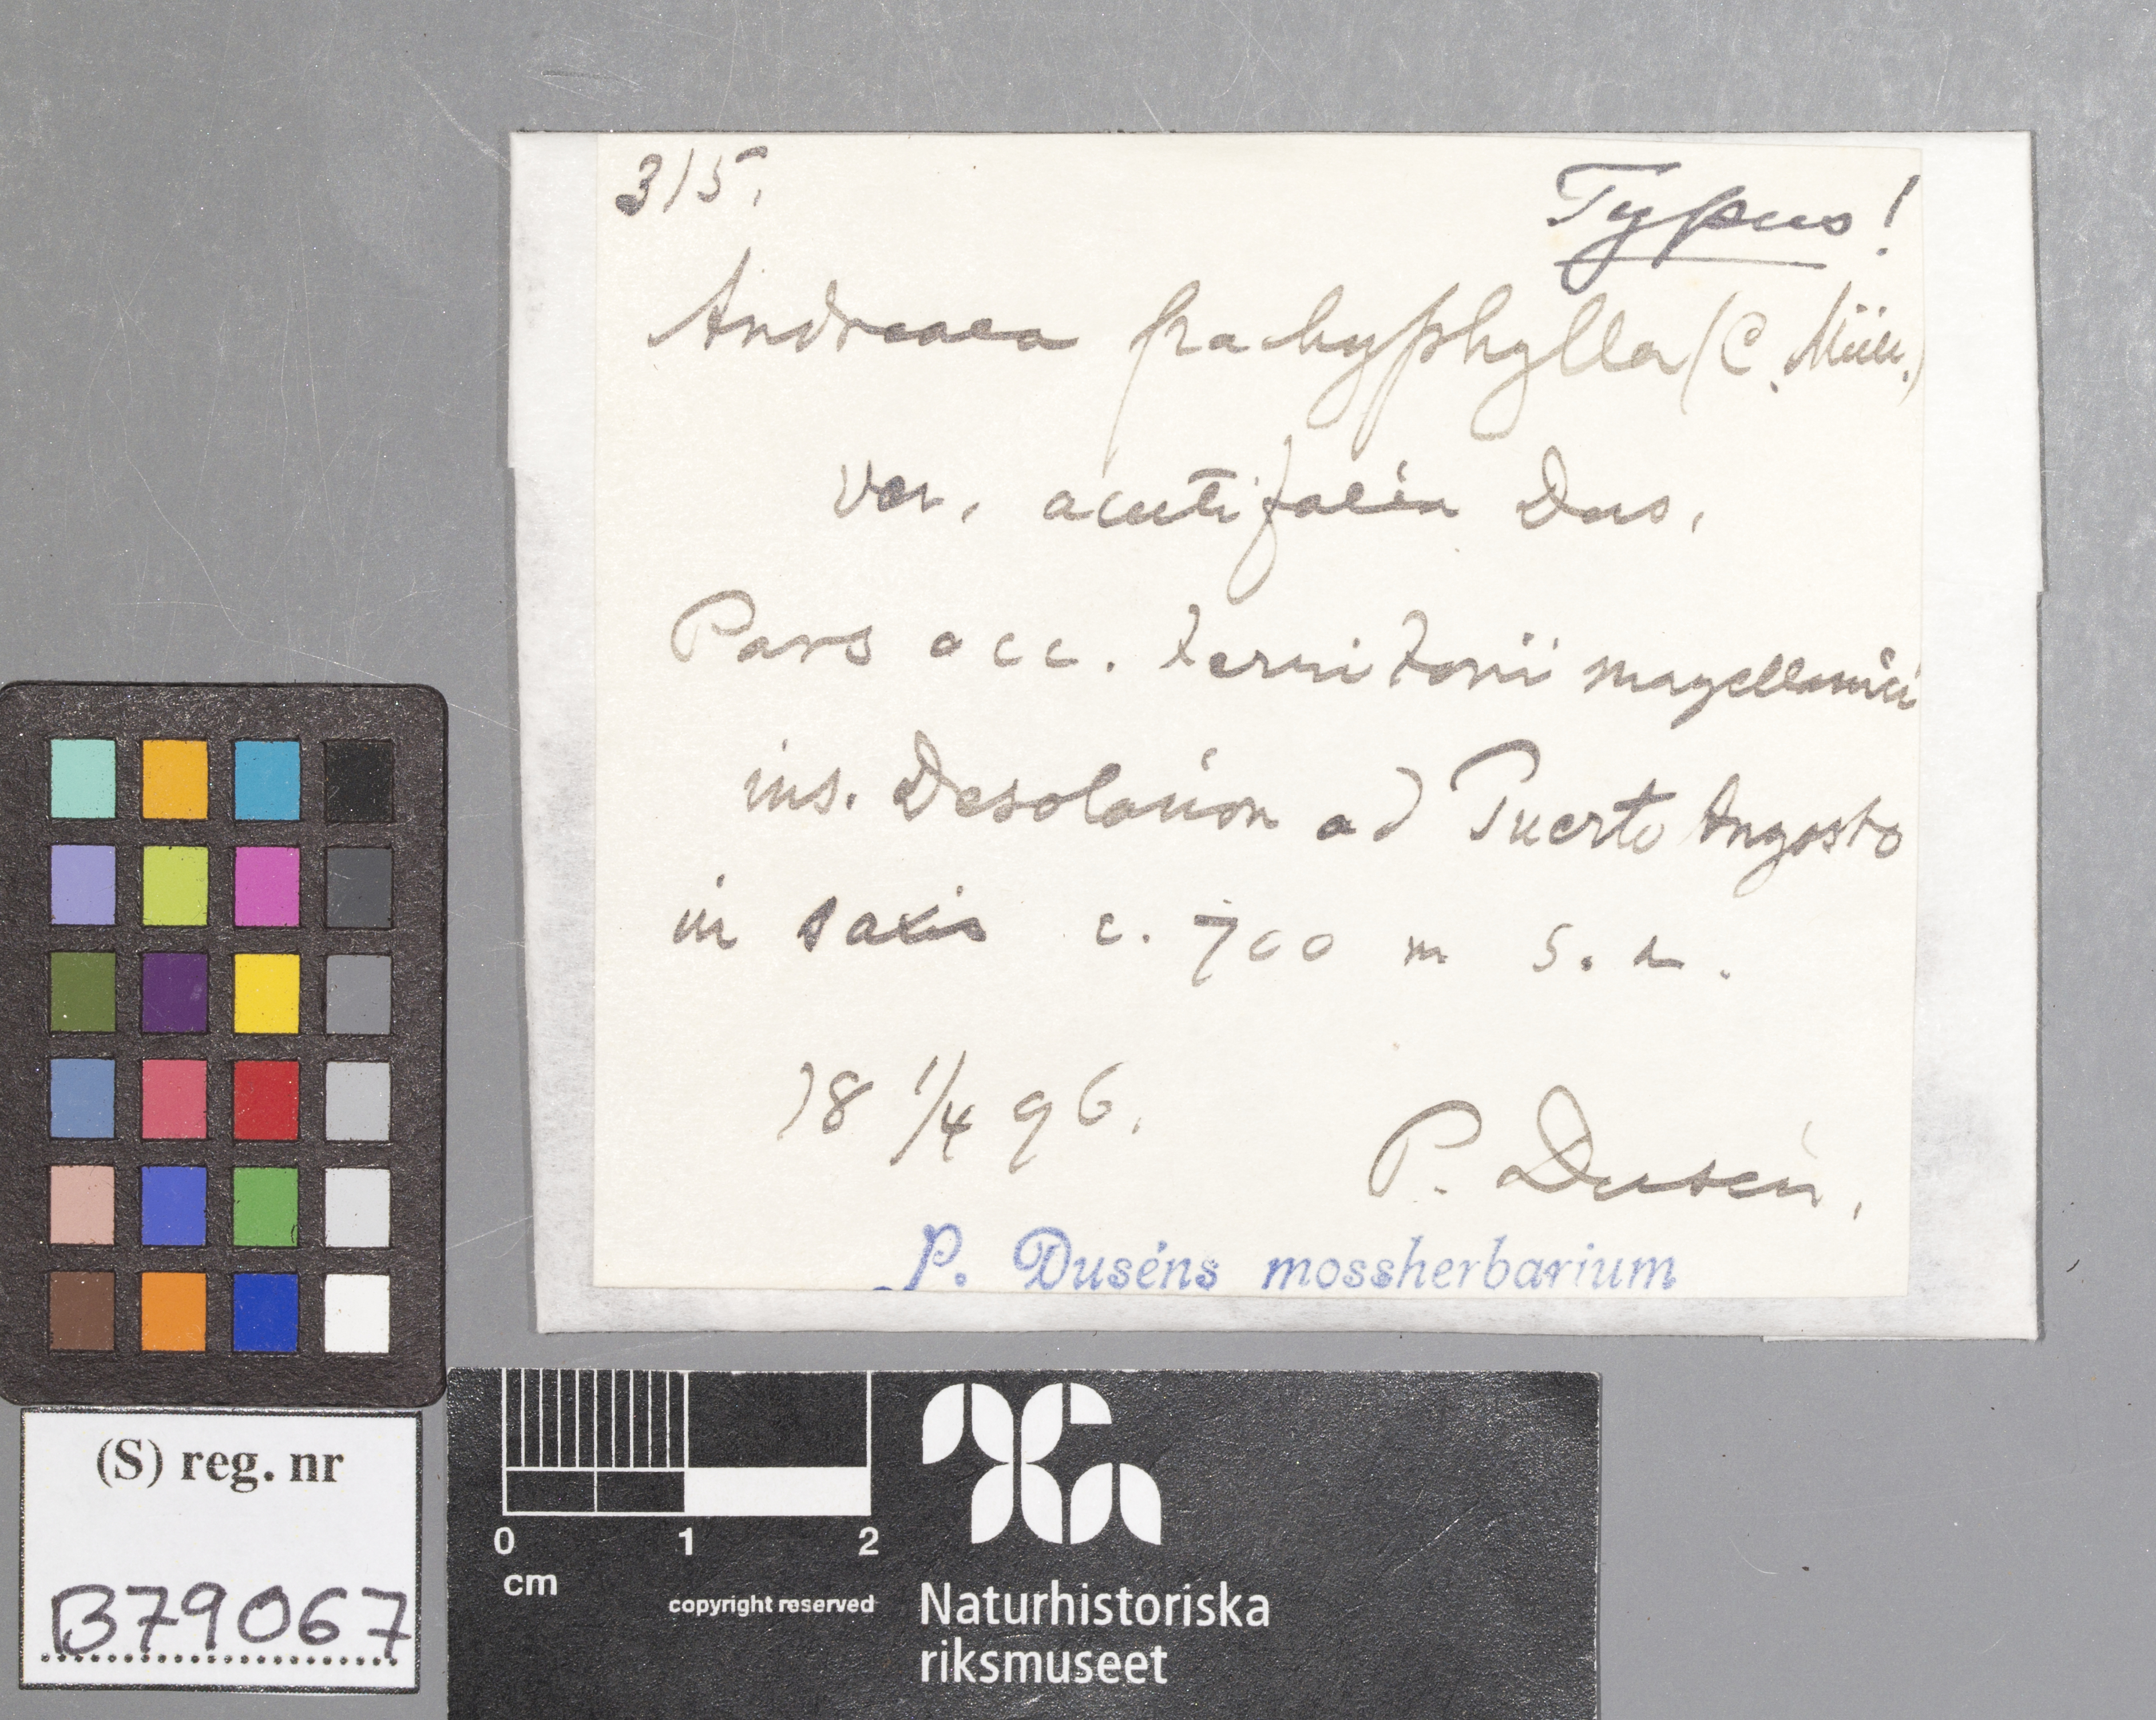 315.
Typus!
Andreaea pachyphylla (C. Müll.)
var. acutifolia Dus.
Pars occ. territorii magellanici
ins. Desolacion ad Puerto Angosto
in saxis c. 700 m s. m.
18 1/4 96.
P. Dusén.
P. Duséns mossherbarium
(S) reg. nr
B79067
0 1 2
cm
copyright reserved
Naturhistoriska
riksmuseet